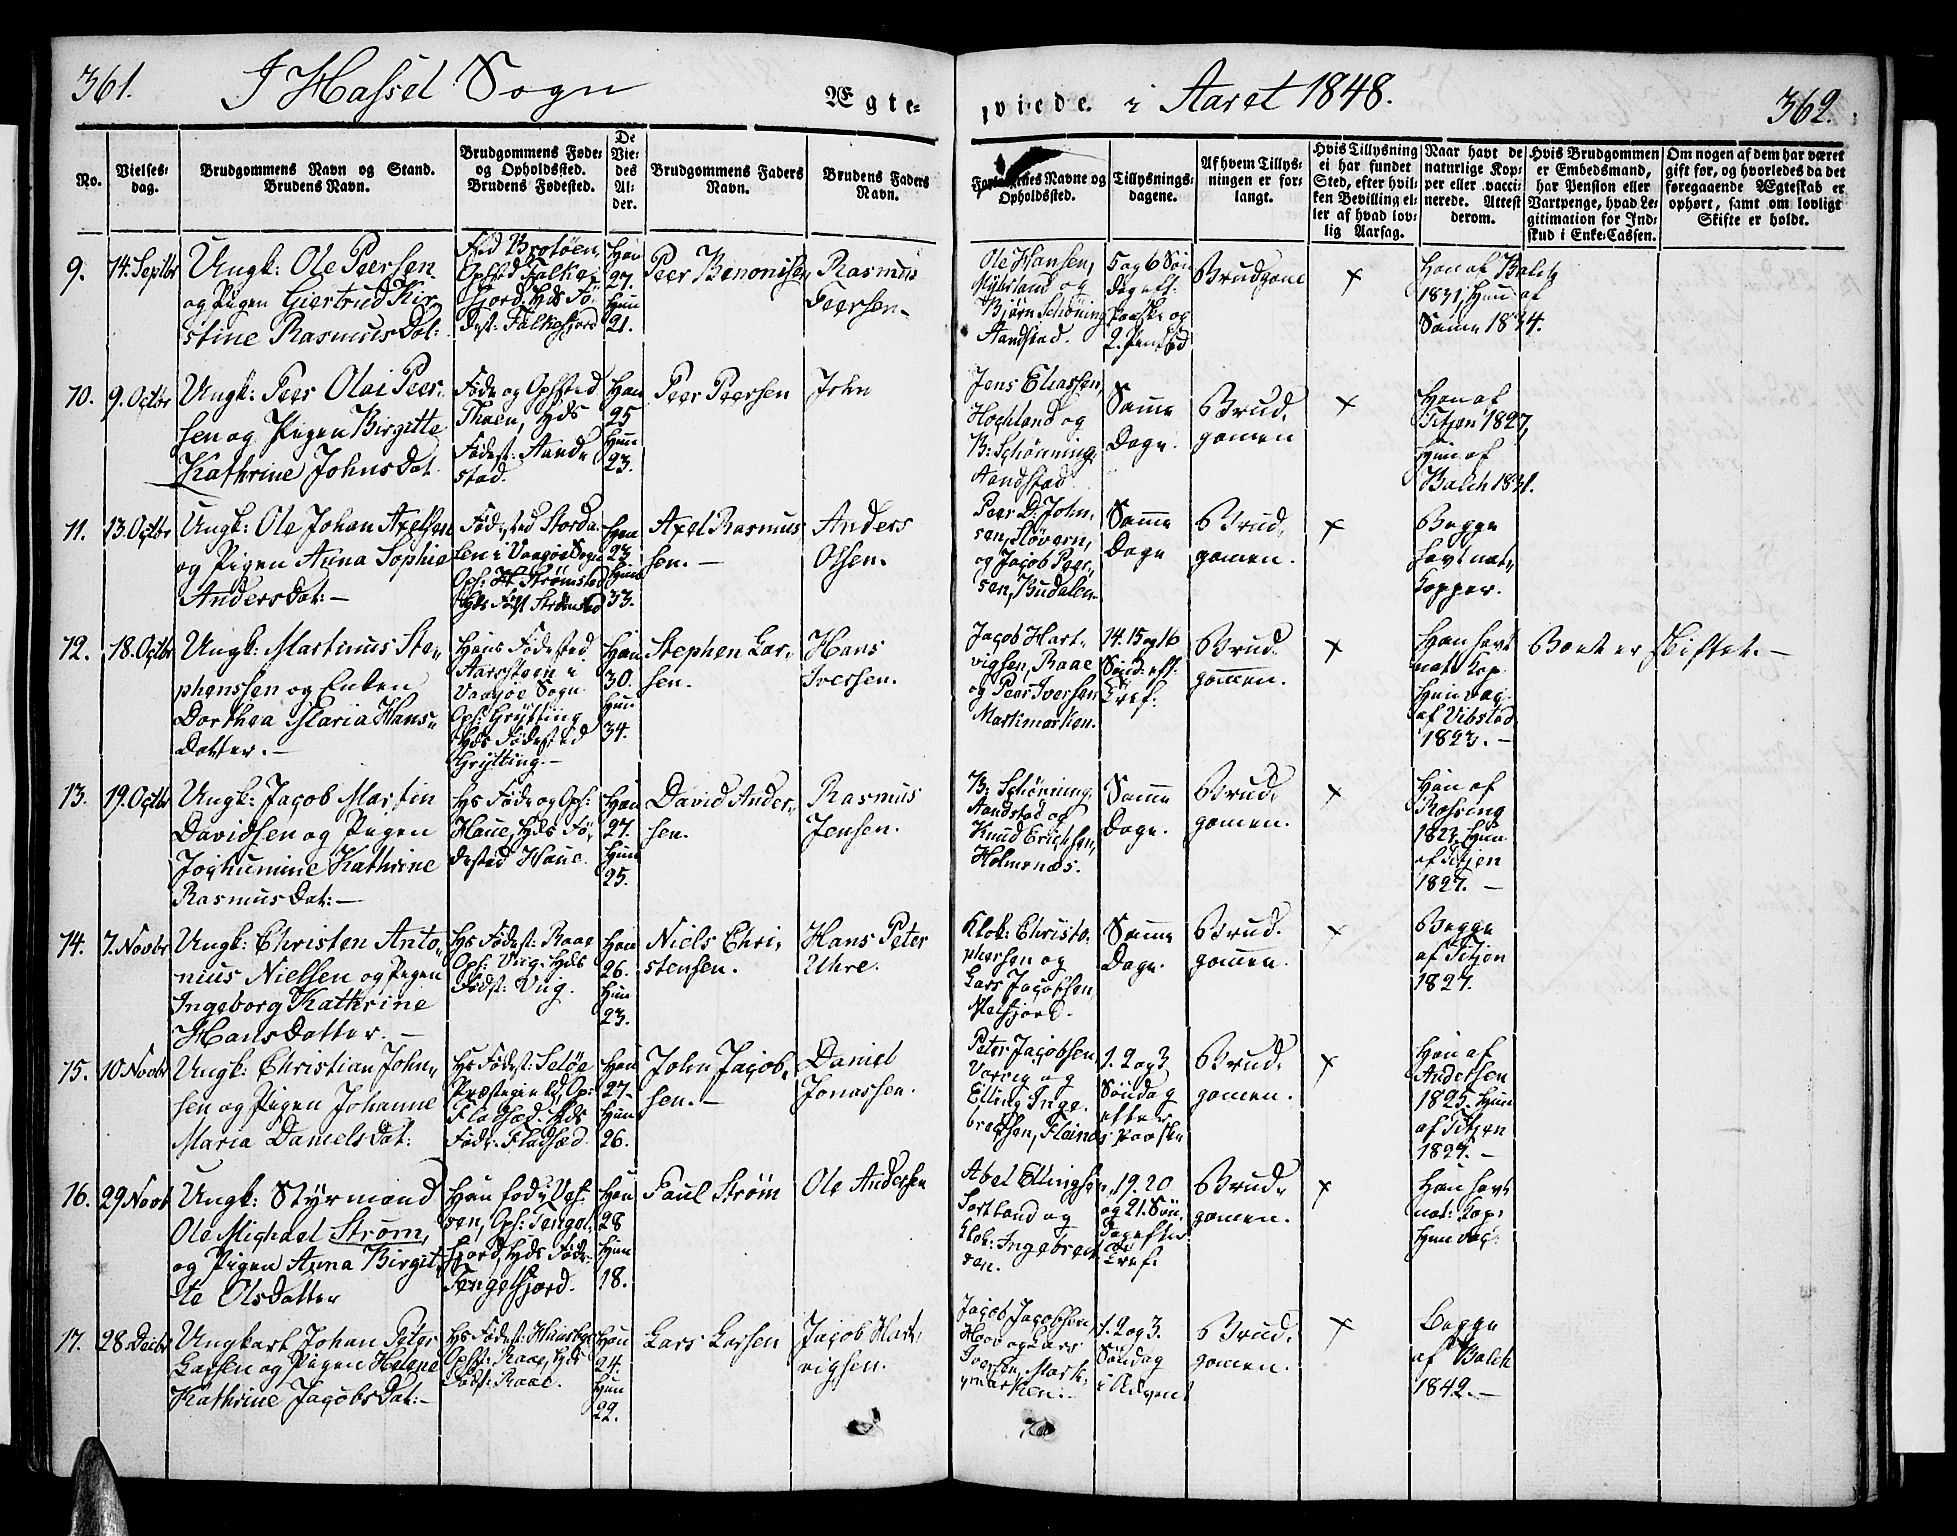 361.
I Hassel Sogn
Ægte-
viede.
i Aaret 1848.
362.
No.
Vielses-
dag.
Brudgommens Navn og Stand.
Brudens Navn.
Brudgommens Føde-
og Opholdssted.
Brudens Fødested.
De
Vie-
des
Al-
der.
Brudgommens Faders
Navn.
Brudens Faders
Navn.
Navne og
Opholdssted.
Tillysnings-
dagene.
Af hvem Tillys-
ningen er for-
langt.
Hvis Tillysning
ei har fundet
Sted, efter hvil-
ken Bevilling el-
ler af hvad lov-
lig Aarsag.
Naar havt de
naturlige Kop-
per eller vacci-
nerede. Attest
derom.
Hvis Brudgommen
er Embedsmand,
har Pension eller
Vartpenge, hvad Le-
gitimation for Ind-
skud i Enke-Cassen.
Om nogen af dem har været
gift før, og hvorledes da det
foregaaende Ægteskab er
ophørt, samt om lovligt
Skifte er holdt.
9.
14. Septbr
Ungk: Ole Peersen
og Pigen Giertrud Kir-
stine RasmusDat:
Fød Brotøen,
Opsted Falke-
fjord. Hds Fø-
dest: Falkefjord
Han
27.
Hun
21.
Peer Benonisen
Rasmus
Peersen.
Ole Hansen,
Nyborland og
Bjørn Schöning
Aandstad.
5 og 6 Søn
dag eft:
Paaske og
2. Pintsed
Brudgome
×
Han af Balch
1831, Hun af
Samme 1834.
10.
9. Octbr
Ungk: Peer Olai Peer-
sen og Pigen Birgitte
Kathrine JohnsDat.
Føde og Ophsted
Thoen, Hds
Fødest: Aand-
stad.
Han
25
Hun
23.
Peer Peersen
John
Jens Eliassen,
Hochland og
B: Schönning,
Aandstad
Samme
Dage.
Brud-
gomen
×
Han af
Titjen 1827,
Hun af
Balch 1831.
11.
13. Octbr
Ungk: Ole Johan Axelsen
og Pigen Anna Sophie
AndersDat: —
Fødested Storda-
len i Vaagøe Sogn
Ops: Strömsted
Hds Fødst Strömsted
Han
23
Hun
33.
Axel Rasmus
sen. —
Anders
Olsen.
Peer D: John-
sen, Støvern,
og Jacob Peer-
sen, Kudalen.
Samme
Dage
Brud-
gomen.
×
Begge
havt nat:
Kopper.
12.
18. Octbr
Ungk: Martinus Ste-
phenssen og Enken
Dorthea Maria Hans-
Datter. —
Hans Fødested
Aarsteen i
Vaagøe Sogn
Ops: Grytting
Hds Fødested
Grytting. —
Han
30.
Hun
34.
Stephen Lar-
sen.
Hans
Iversen.
Jacob Hart-
vigsen, Raae
og Peer Iversen
Markmarken.
14. 15 og 16
Sönd: eft:
Tref:
Brud-
gommen.
×
Han havt
nat: Kop.
Hun vac.
af Vibstad
1823. —
Boet er skiftet. —
13.
19. Octbr
Ungk: Jacob Martin
Davidsen og Pigen
Jochumine Kathrine
RasmusDat: —
Hs Føde og Ops:
Haue, Hds Fø-
dested Haue.
Han
27.
Hun
25.
David Ander-
sen.
Rasmus
Jensen.
B: Schönning,
Aandstad og
Knud Erichsen,
Holmenæs.
Samme
Dage.
Brud-
gomen.
×
Han af
Rossing
1823, Hun
af Titjen
1827. —
14.
7. Novbr
Ungk: Christen Anto-
nius Nielsen og Pigen
Ingeborg Kathrine
HansDatter. —
Hs Fødest: Raae
Ops: Vug. Hds
Fødst: Vug.
Han
26.
Hun
23.
Niels Chri-
stensen.
Hans Peter
Uhre.
Klok: Christo-
phersen og
Lars Jacobsen
Melfjord.
Samme
Dage.
Brud-
gommen.
×
Begge
af Titjen
1827.
15.
10 Novbr
Ungk: Christian John-
sen og Pigen Johanne
Maria DanielsDat:
Hs Fødest: Seløe
Præstegield, Op:
Fladsæd. Hds
Føde: Fladsæd.
Han
27.
Hun
26.
John Jacob-
sen. —
Daniel
Jonassen.
Peter Jacobsen,
Vorvig og
Elling Inge-
bretsen, Fleines
1. 2 og 3
Søndag
efter
Paaske
Brud-
gomen.
×
Han af
Andersen
1825. Hun
af Titjen
1827. —
16.
29 Novb
Ungk: Styrmand
Ole Michael Strøm,
og Pigen Anna Birgit-
te Olsdatter
Han fød
Ops: Fengel-
fjord, Hds Føde
Fengelfjord.
Han
28
Hun
18.
Paul Strøm
Ole Andersen
Abel Ellingsen,
Sortland og
Klok: Ingebret-
sen.
19. 20
og 21. Søn-
dag efter
Tref.
Brud-
gomen.
×
Han havt
nat: Kop:
Hun vac:
17.
28. Decbr
Ungkarl Johan Peter
Larsen og Pigen Helene
Kathrine JacobsDat: —
Ops: Raae, Hds
Fødst: Raae.
Han
24.
Hun
22.
Lars Larsen
Jacob Hart-
vigsen.
Jacob Jacobsen,
Hoov og Lars
Iversen, Mark-
marken. —
1. 2 og 3.
Søndag
i Advent
Brud-
gomen.
×
Begge
af Balch
1842. —